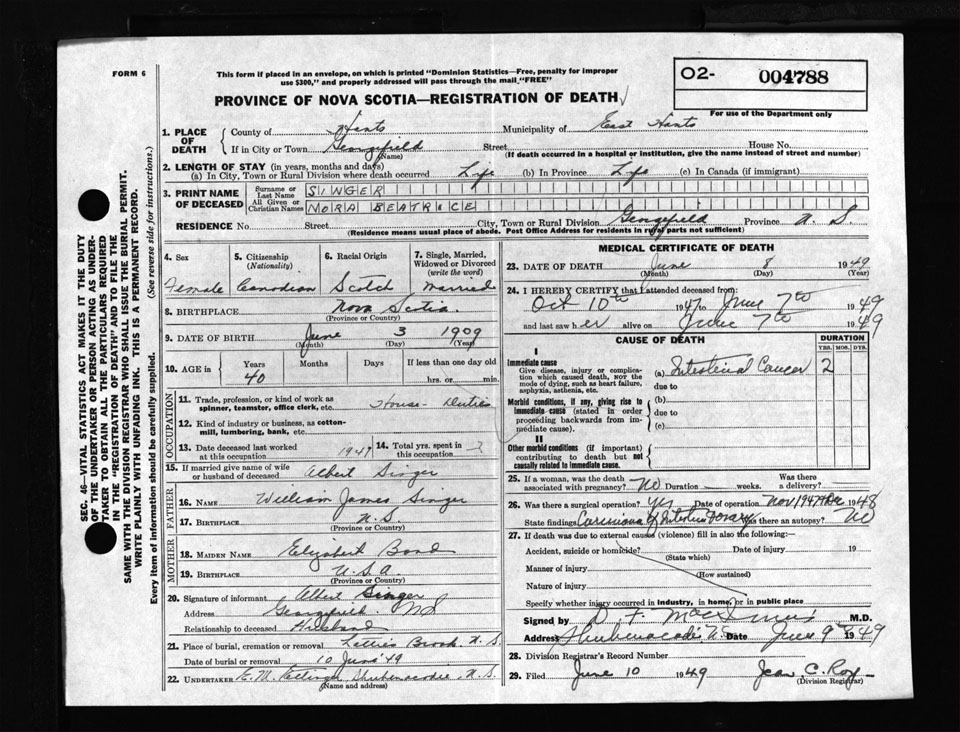 FORM 6
This form if placed in an envelope, on which is printed "Dominion Statistics—Free, penalty for improper
use $300," and properly addressed will pass through the mail "FREE"
O2- 004788
For use of the Department only
PROVINCE OF NOVA SCOTIA—REGISTRATION OF DEATH
1. PLACE OF DEATH
County of Hants Municipality of East Hants
If in City or Town Georgefield Street House No.
(Name) (If death occurred in a hospital or institution, give the name instead of street and number)
2. LENGTH OF STAY (in years, months and days)
(a) In City, Town or Rural Division where death occurred Life (b) In Province Life (c) In Canada (if immigrant)
3. PRINT NAME OF DECEASED
Surname or Last Name SINGER
All Given or Christian Names NORA BEATRICE
RESIDENCE No. Street City, Town or Rural Division Georgefield Province N. S.
(Residence means usual place of abode. Post Office Address for residents in rural parts not sufficient)
4. Sex
Female
5. Citizenship (Nationality)
Canadian
6. Racial Origin
Scotch
7. Single, Married, Widowed or Divorced (write the word)
Married
8. BIRTHPLACE Nova Scotia
(Province or Country)
9. DATE OF BIRTH June 3 1909
(Month) (Day) (Year)
10. AGE in Years Months Days If less than one day old
40 hrs. or min.
OCCUPATION
11. Trade, profession, or kind of work as
spinner, teamster, office clerk, etc. House-Duties
12. Kind of industry or business, as cotton-
mill, lumbering, bank, etc.
13. Date deceased last worked at this occupation 1947 14. Total yrs. spent in this occupation
15. If married give name of wife
or husband of deceased Albert Singer
FATHER
16. NAME William James Singer
17. BIRTHPLACE N.S.
(Province or Country)
MOTHER
18. MAIDEN NAME Elizabeth Bond
19. BIRTHPLACE U.S.A.
(Province or Country)
20. Signature of informant Albert Singer
Address Georgefield NS
Relationship to deceased Husband
21. Place of burial, cremation or removal Brook N. S.
Date of burial or removal 10 June '49
22. UNDERTAKER E. M. Shubenacadie N. S.
(Name and address)
MEDICAL CERTIFICATE OF DEATH
23. DATE OF DEATH June 8 1949
(Month) (Day) (Year)
24. I HEREBY CERTIFY that I attended deceased from:
Oct 10th 1947 to June 7th 1949
and last saw her alive on June 7th 1949
CAUSE OF DEATH DURATION
YRS. MOS. DYS.
I
Immediate cause
Give disease, injury or complica-
tion which caused death, NOT the
mode of dying, such as heart failure,
asphyxia, asthenia, etc.
(a) Intestinal Cancer 2
due to
Morbid conditions, if any, giving rise to
immediate cause (stated in order
proceeding backwards from im-
mediate cause).
(b)
due to
(c)
II
Other morbid conditions (if important)
contributing to death but not
causally related to immediate cause.
25. If a woman, was the death
associated with pregnancy? No Duration weeks. Was there a delivery?
26. Was there a surgical operation? yes Date of operation Nov 1947 + Dec 1948
State findings of Intestine Was there an autopsy? No
27. If death was due to external causes (violence) fill in also the following:—
Accident, suicide or homicide? Date of injury 19
(State which)
Manner of injury
(How sustained)
Nature of injury
Specify whether injury occurred in industry, in home, or in public place
Signed by D. F. MacInnis M.D.
Address Shubenacadie N.S. Date June 9th 1949
28. Division Registrar's Record Number
29. Filed June 10 1949 Jean C. Roy
(Division Registrar)
SEC. 46—VITAL STATISTICS ACT MAKES IT THE DUTY
OF THE UNDERTAKER OR PERSON ACTING AS UNDER-
TAKER TO OBTAIN ALL THE PARTICULARS REQUIRED
IN THE "REGISTRATION OF DEATH" AND TO FILE THE
SAME WITH THE DIVISION REGISTRAR WHO SHALL ISSUE THE BURIAL PERMIT.
WRITE PLAINLY WITH UNFADING INK. THIS IS A PERMANENT RECORD.
Every item of information should be carefully supplied. (See reverse side for instructions.)